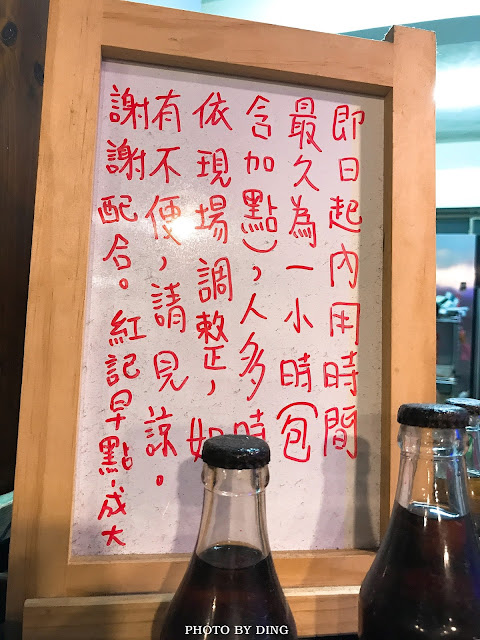 即日起內用時間
最久為一小時(包
含加點),人多時
依現場調整,如
有不便,請見諒。
謝謝配合。紅記早點.成大
PHOTO BY DING